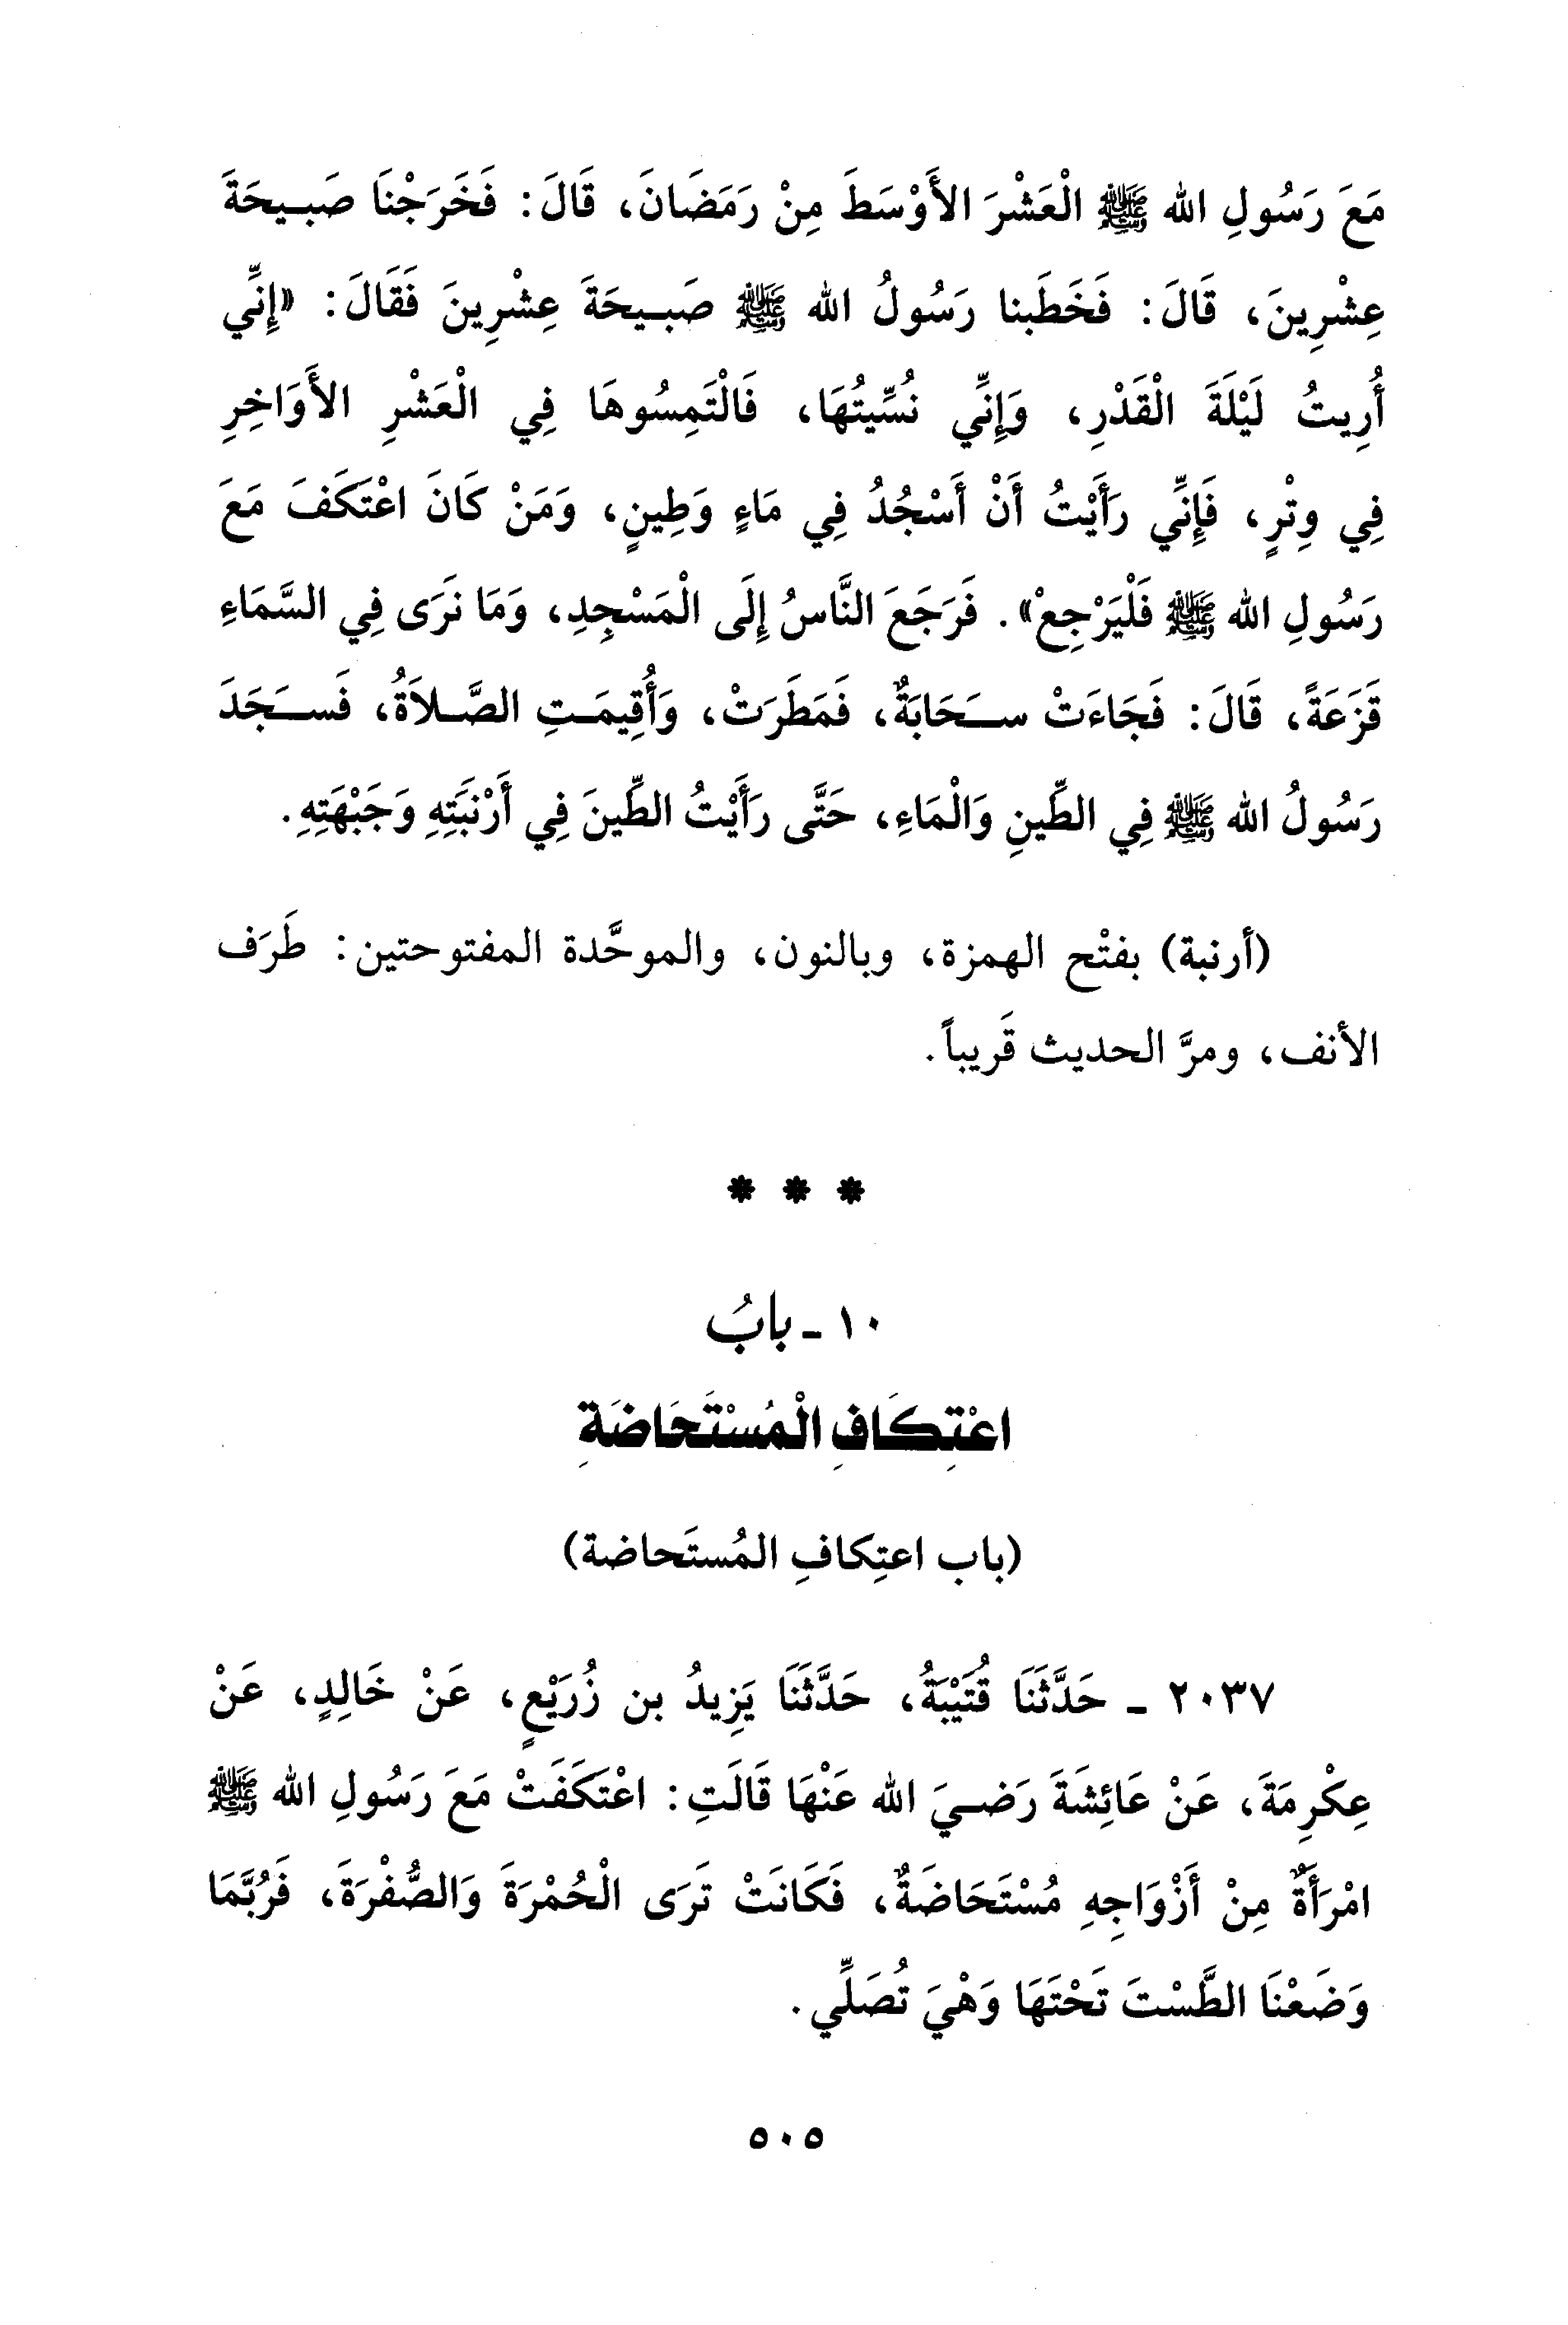 مَعَ رَسُولِ الله ﷺ الْعَشْرَ الأَوْسَطَ مِنْ رَمَضَانَ، قَالَ: فَخَرَجْنَا صَبِيحَةَ
عِشْرِينَ، قَالَ: فَخَطَبنا رَسُولُ الله ﷺ صَبِيحَةَ عِشْرِينَ فَقَالَ: «إِنِّي
أُرِيتُ لَيْلَةَ الْقَدْرِ، وَإِنِّي نُسِّيتُهَا، فَالْتَمِسُوهَا فِي الْعَشْرِ الأَوَاخِرِ
فِي وِتْرٍ، فَإِنِّي رَأَيْتُ أَنْ أَسْجُدُ فِي مَاءٍ وَطِينٍ، وَمَنْ كَانَ اعْتَكَفَ مَعَ
رَسُولِ الله ﷺ فَلْيَرْجِعْ». فَرَجَعَ النَّاسُ إِلَى الْمَسْجِدِ، وَمَا نَرَى فِي السَّمَاءِ
قَزَعَةً، قَالَ: فَجَاءَتْ سَحَابَةٌ، فَمَطَرَتْ، وَأُقِيمَتِ الصَّلاَةُ، فَسَجَدَ
رَسُولُ الله ﷺ فِي الطِّينِ وَالْمَاءِ، حَتَّى رَأَيْتُ الطِّينَ فِي أَرْنَبَتِهِ وَجَبْهَتِهِ.
(أرنبة) بفتْح الهمزة، وبالنون، والموحَّدة المفتوحتين: طَرَف
الأنف، ومرَّ الحديث قَريباً.
* * *
١٠ - بابُ
اعْتِكَافِ الْمُسْتَحَاضَةِ
(باب اعتِكافِ المُستَحاضة)
٢٠٣٧ - حَدَّثَنَا قُتَيْبَةُ، حَدَّثَنَا يَزِيدُ بن زُرَيْعٍ، عَنْ خَالِدٍ، عَنْ
عِكْرِمَةَ، عَنْ عَائِشَةَ رَضِيَ الله عَنْهَا قَالَتِ: اعْتَكَفَتْ مَعَ رَسُولِ الله ﷺ
امْرَأَةٌ مِنْ أَزْوَاجِهِ مُسْتَحَاضَةٌ، فَكَانَتْ تَرَى الْحُمْرَةَ وَالصُّفْرَةَ، فَرُبَّمَا
وَضَعْنَا الطَّسْتَ تَحْتَهَا وَهْيَ تُصَلِّي.
٥٠٥